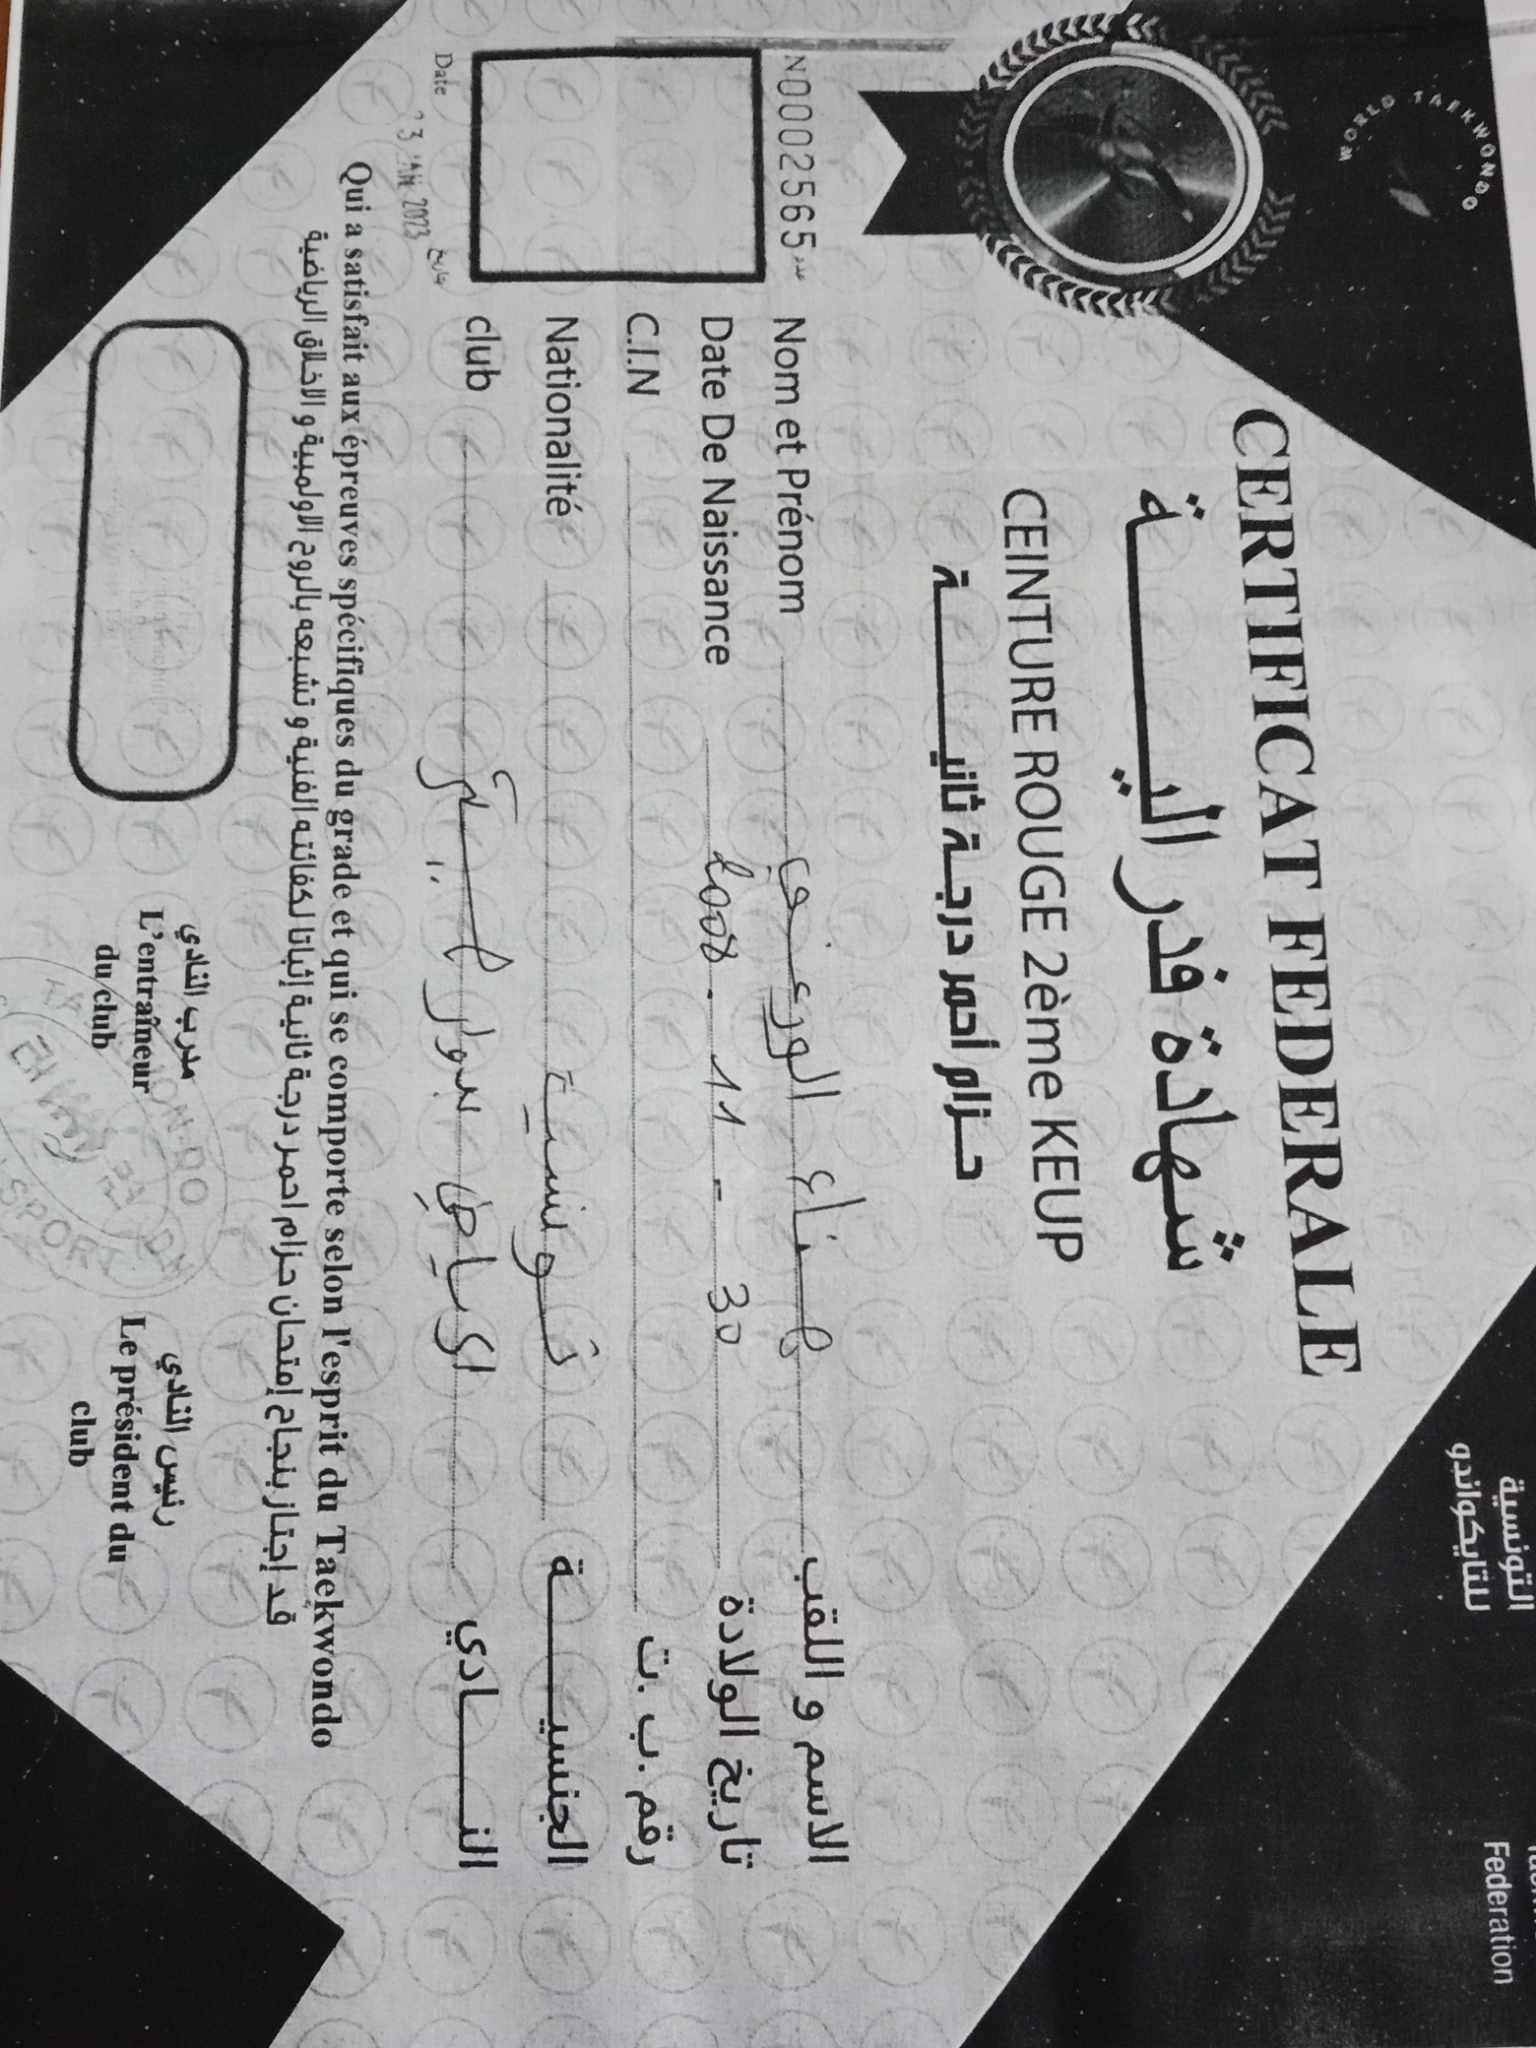 WORLD TAEKWONDO
التونسية
للتايكواندو
Federation
CERTIFICAT FEDERALE
شهادة فدرالية
CEINTURE ROUGE 2ème KEUP
حزام أحمر درجة ثانية
N0002565 عدد
Nom et Prénom هناء الورغي الاسم و اللقب
Date De Naissance 2008 - 11 - 30 تاريخ الولادة
C.I.N رقم .ب .ت
Nationalité تونسية الجنسية
club الرياضي بدوار هيشر النادي
Date 3 JAN 2023 تاريخ
Qui a satisfait aux épreuves spécifiques du grade et qui se comporte selon l'esprit du Taekwondo
قد إجتاز بنجاح إمتحان حزام احمر درجة ثانية إثباتا لكفائته الفنية و تشبعه بالروح الاولمبية و الاخلاق الرياضية
مدرب النادي
L'entraîneur
du club
رئيس النادي
Le président du
club
SPORT